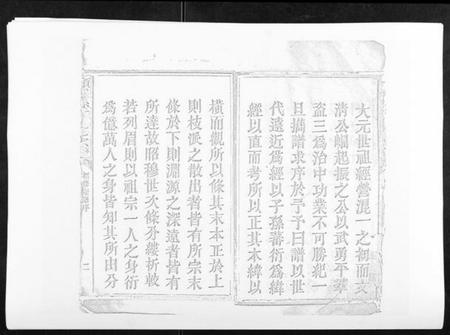 大元世祖經營混一之初而文
清公崛起振之公以武勇平羣
盜三為治中功業不可勝紀一
旦摘譜求序於予予曰譜以世
代遠近為經以子孫蕃衍為緯
經以直而考所以正其本緯以
橫而觀所以條其末本正於上
則枝派之散出者皆有所宗末
條於下則淵源之深遠者皆有
所達故昭穆世次條分縷析較
若列眉則以祖宗一人之身衍
為億萬人之身皆知其所出分
二